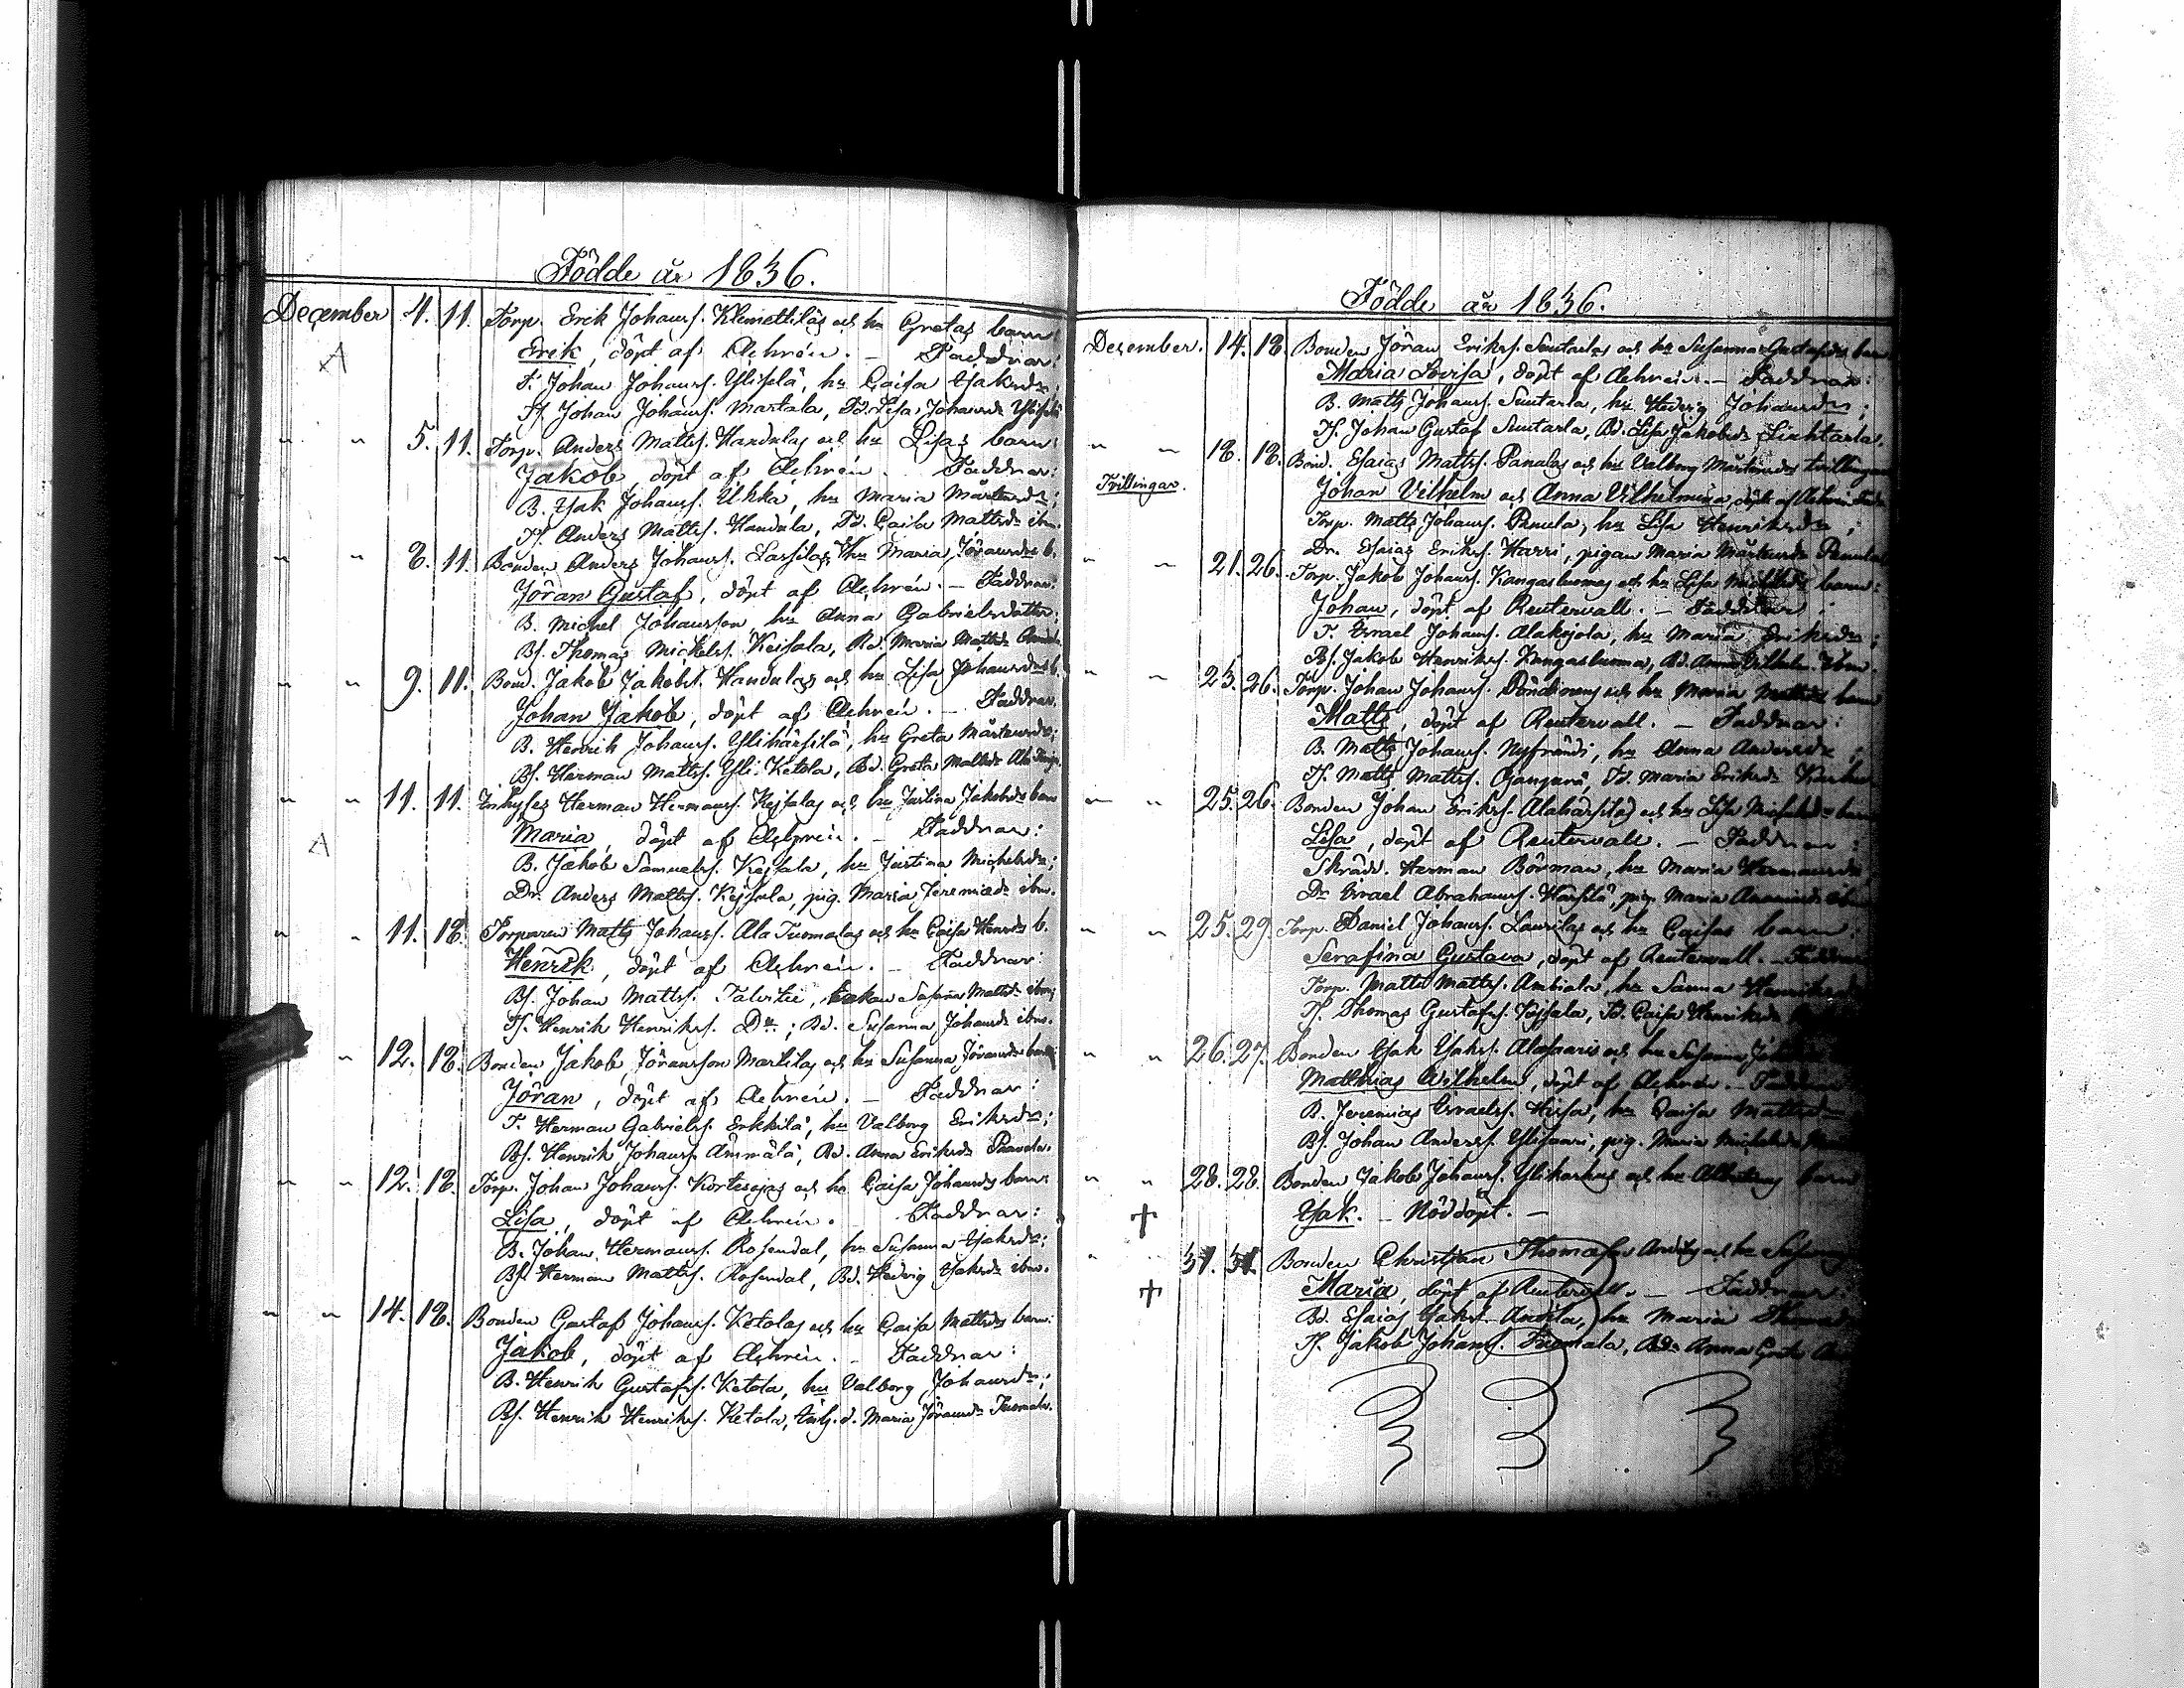 Födde år 1836.
December 4. 11. Torp. Erik Johansf. Klemettiläs och hu Gretas barn
A Erik, döpt af Aehrén. – Faddrar:
T. Johan Johansf. Ylisplä, hu Caisa Isaksdr;
Tf. Johan Johansf. Martala, Td. Lisa Johansdr
" " 5. 11. Torp. Anders Mattsf. Handulas och hu Lisas barn:
Jakob, döpt af Aehrén. Faddrar:
B. Isak Johansf. Uhka, hu Maria Mårtensdr;
Tf. Anders Mattsf. Handula, Td. Caisa Mattsdr ibm.
" " 8. 11. Bonden Anders Johansf. Lassilas, hu Maria Jöransdrs b.
Jöran Gustaf, döpt af Aehrén. – Faddrar:
B. Michel Johansson, hu Anna Gabrielsdotter;
Bf. Thomas Mickelsf. Keisala, Bd. Maria Mattsdr
" " 9. 11. Bond. Jakob Jakobsf. Handulas och hu Lisa Johansdrs b.
Johan Jakob, döpt af Aehrén. – Faddrar.
B. Henrik Johansf. Ylihärsilä, hu Greta Mårtensdr;
Bf. Herman Mattsf. Yli-Ketola, Bd. Greta Mattsdr
" " 11. 11. Inhyses Herman Hermansf. Kejsalas och hu Justina Jakobsdrs barn
A Maria, döpt af Aehrén. – Faddrar:
B. Jakob Samuelsf. Kejsala, hu Justina Michelsdr;
Dr. Anders Mattsf. Kejsala, pig. Maria Jeremiædr ibm.
" " 11. 18. Torparen Matts Johansf. Ala Tuomalas och hu Caisa Henrdrs b.
Henrik, döpt af Aehrén. – Faddrar:
Bf. Johan Mattsf. Talvitie, Enkan Susanna Mattsdr ibm;
Tf. Henrik Henriksf. Do; Bd. Susanna Johansdr ibm.
" 12. 18. Bonden Jakob Jöransson Marttilas och hu Susanna Jöransdrs barn
Jöran, döpt af Aehrén. – Faddrar:
T. Herman Gabrielsf. Erkkilä, hu Valborg Eriksdr;
Bf. Henrik Johansf. Ämmälä, Bd. Anna Eriksdr Panula.
" " 12. 18. Torp. Johan Johansf. Kortesojas och hu Caisa Johansdrs barn:
Lisa, döpt af Aehrén. Faddrar:
B. Johan Hermansf. Rosendal, hu Susanna Isaksdr;
Bf. Herman Mattsf. Rosendal, Bd. Hedvig Isaksdr ibm.
" " 14. 18. Bonden Gustaf Johansf. Ketolas och hu Caisa Mattsdrs barn:
Jakob, döpt af Aehrén. – Faddrar:
B. Henrik Gustafsf. Ketola, hu Valborg Johansdr;
Bf. Henrik Henriksf. Ketola, Inh. d. Maria Jöransdr Tuomala.
Födde år 1836.
December. 14. 18. Bonden Jöran Eriksf. Sentulas och hu Susanna Gustafsdrs barn
Maria Lovisa, döpt af Aehrén. – Faddrar:
B. Matts Johansf. hu Hedvig Johansdr;
Tf. Johan Gustaf Bd. Lisa Jakobsdr
" " 18. 18. Bond. Esaias Mattsf. Panulas och hu Valborg Mårtensdrs tvillingar
Tvillingar. Johan Vilhelm och Anna Vilhelmina, döpt af Aehrén
Torp. Matts Johansf. Panula, hu Lisa Henriksdr;
Dr. Esaias Eriksf. Harri, pigan Maria Mårtensdr Panula
" " 21. 26. Torp. Jakob Johansf. Kangasluomas och hu Lisa Michelsdrs barn:
Johan, döpt af Reutervall. – Faddrar:
T. Israel Johansf. Alakojola, hu Maria Eriksdr;
Bf. Jakob Henriksf. Kangasluoma, Bd. Anna Vilhelm. ibm.
" " 23. 26. Torp. Johan Johansf. och hu Maria Mattsdrs barn
Matts, döpt af Reutervall. – Faddrar:
B. Matts Johansf. Nyfrändi, hu Anna Andersdr
Tf. Matts Mattsf. Td. Maria Eriksdr
" " 25. 26. Bonden Johan Eriksf. Alahärsiläs och hu Lisa Michelsdrs barn
Lisa, döpt af Reutervall. – Faddrar:
Skräd. Herman Börman, hu Maria Hermansdr
Dr Israel Abrahamsf. Härsilä, pig. Maria
" " 25. 29. Torp. Daniel Johansf. Laurilas och hu Caisas barn:
Serafina Gustava, döpt af Reutervall. – Faddrar
Torp. Matts Mattsf. hu Sanna Henriksdr
Tf. Thomas Gustafsf. Kejsala, Td. Caisa Henriksdr
" " 26. 27. Bonden Isak Isaksf. och hu Susanna
Matthias Wilhelm, döpt af Aehrén. – Faddrar
B. Jeremias Israelsf. Hissa, hu Caisa Mattsdr
Bf. Johan Andersf. pig. Maria Michelsdr
" " 28. 28. Bonden Jakob Johansf. Ylikarhus och hu barn
+ Isak. – Nöddöpt. –
" " 31. 31. Bonden Christian Thomasf. och hu
+ Maria, döpt af Reutervall. – Faddrar:
Bd. Esaias Isaksf. Anttila, hu Maria
Tf. Jakob Johansf. Tuomala, Bd. Anna Greta